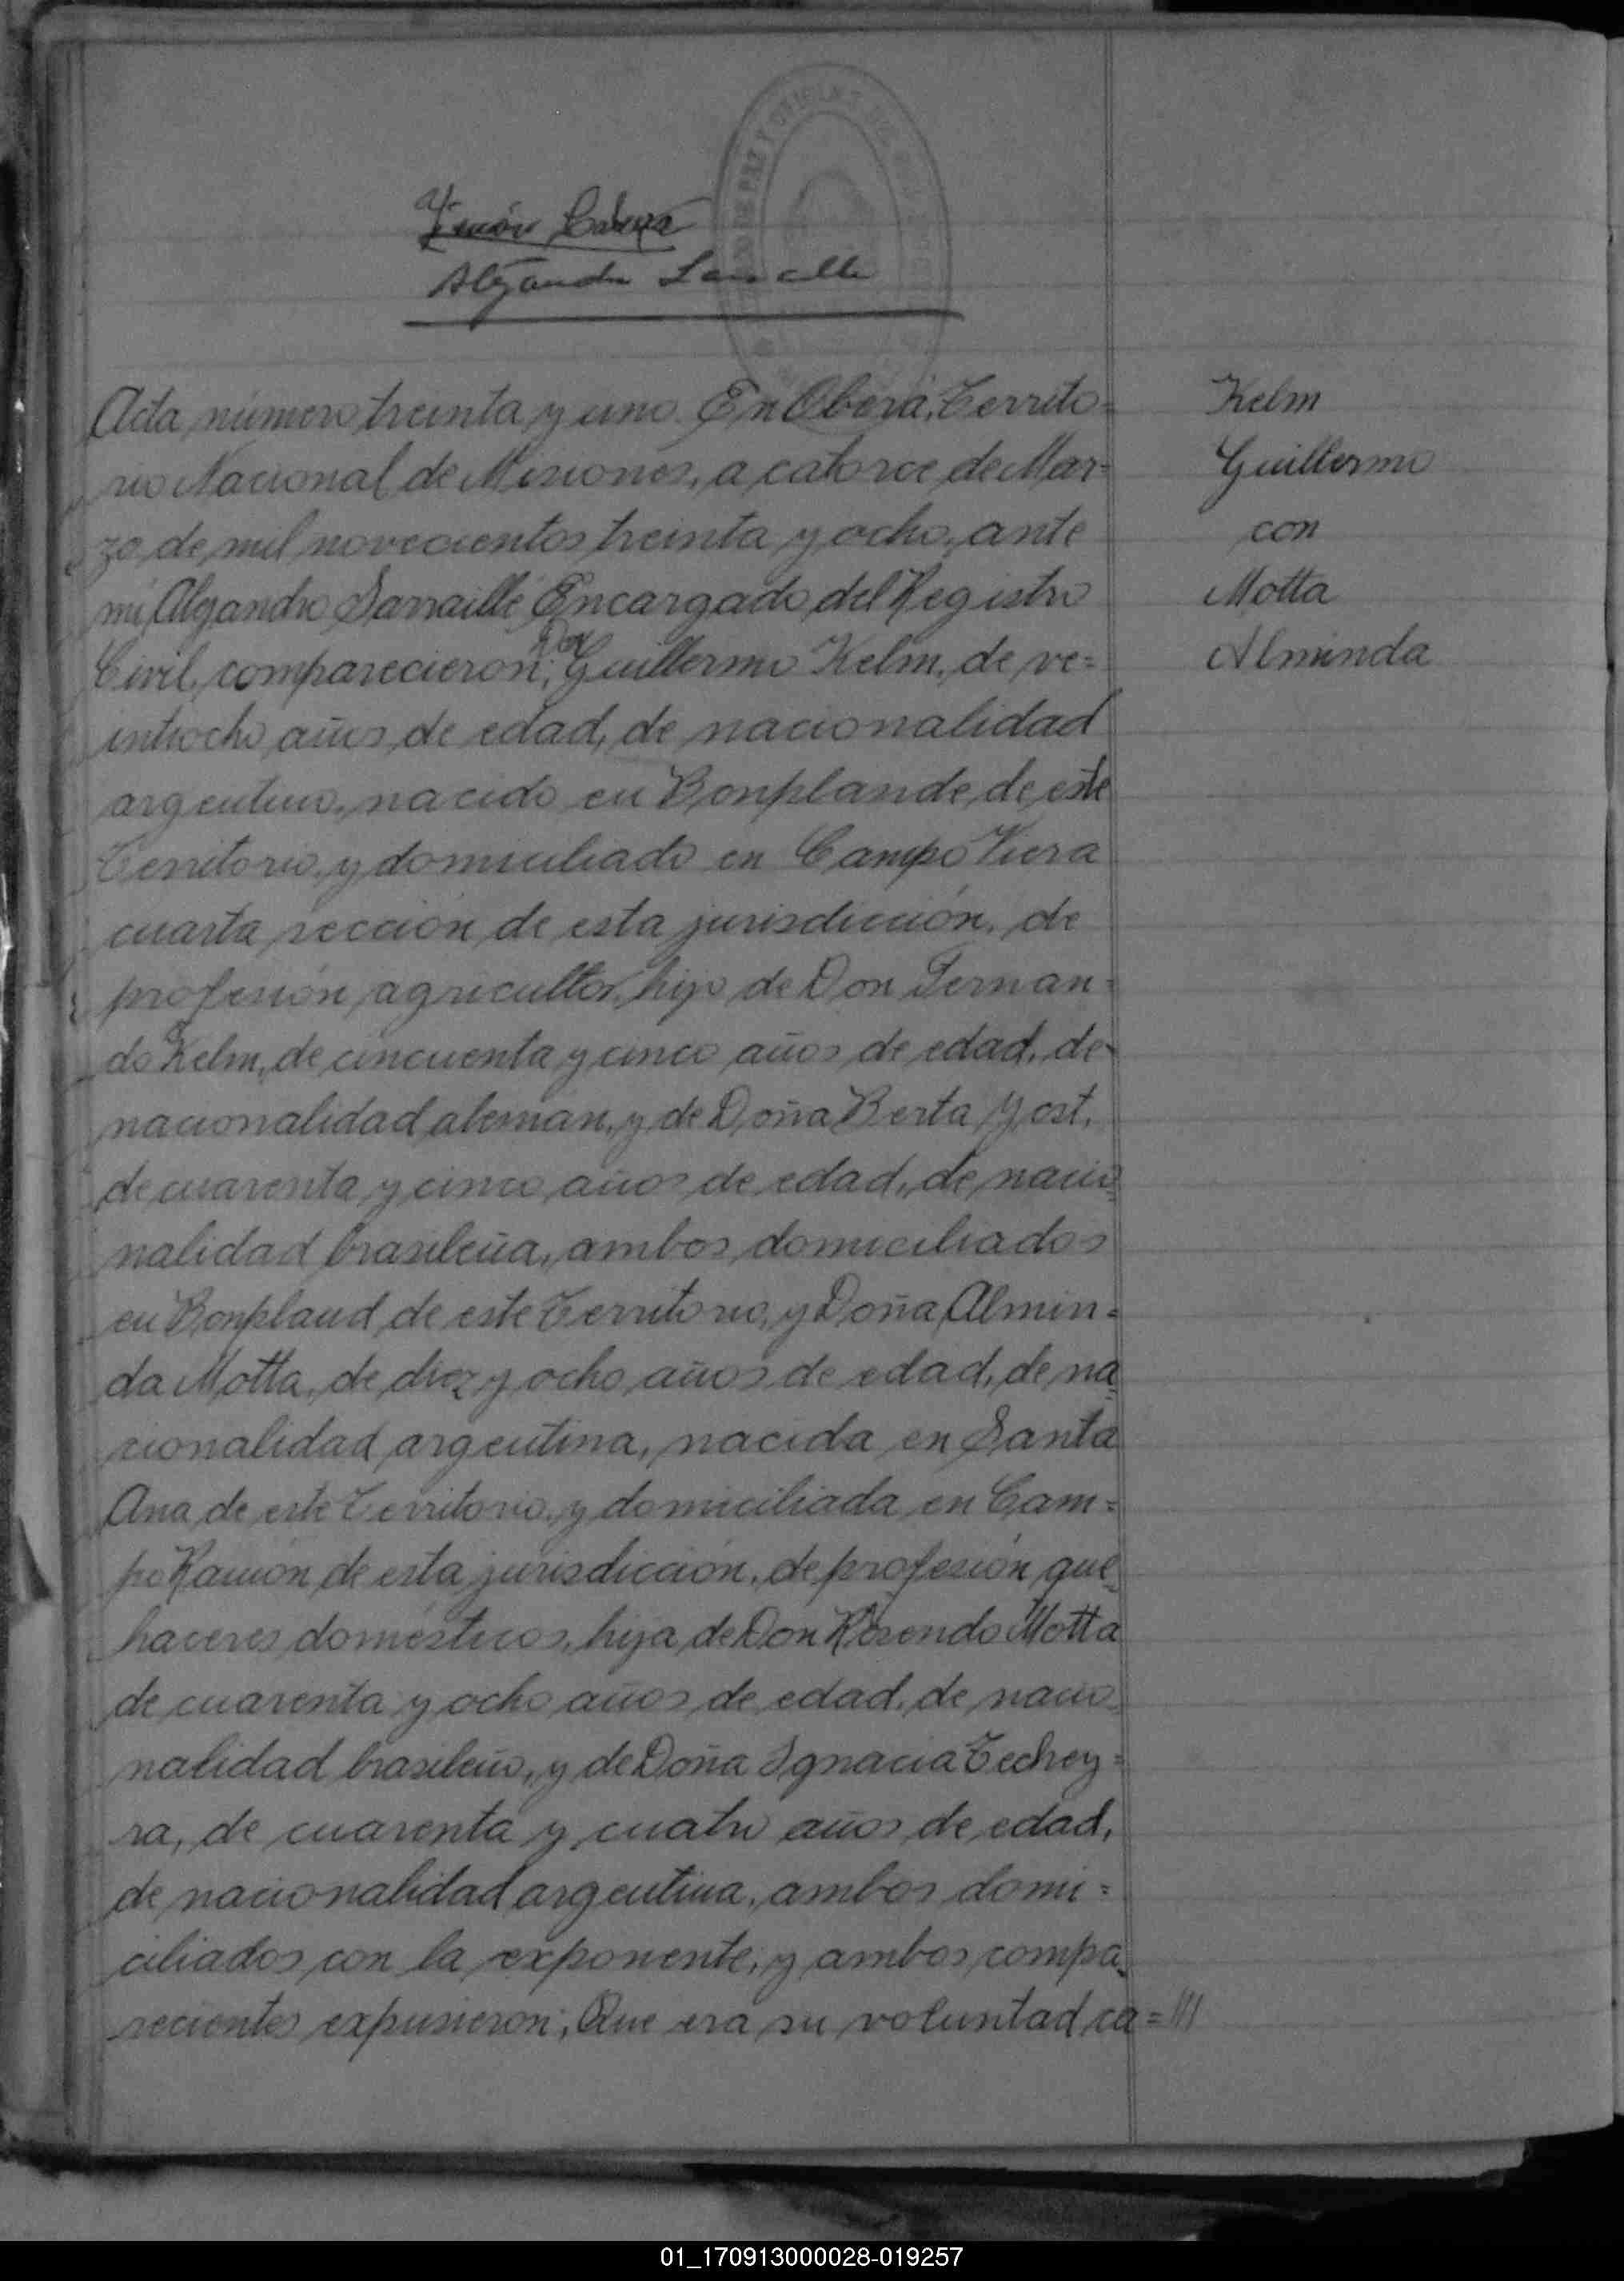 Alejandro Sarraillé
Acta número treinta y uno. En Oberá, Territo=
rio Nacional de Misiones, a catorce de Mar=
zo de mil novecientos treinta y ocho, ante
mi Alejandro Sarraillé Encargado del Registro
Don
Civil, comparecieron; Guillermo Kelm, de ve=
intiocho años de edad, de nacionalidad
argentino, nacido en Bonplande, de este
Territorio, y domiciliado en Campo Viera
cuarta sección de esta jurisdicción, de
profesión agricultor, hijo de Don Fernan=
do Kelm, de cincuenta y cinco años de edad, de
nacionalidad aleman, y de Doña Berta Yost,
de cuarenta y cinco años de edad, de nacio=
nalidad brasileña, ambos domiciliados
en Bonpland de este Territorio, y Doña Almin=
da Motta, de diez y ocho años de edad, de na=
cionalidad argentina, nacida en Santa
Ana de este Territorio, y domiciliada en Cam=
po Ramón de esta jurisdicción, de profesión que=
haceres domésticos, hija de Don Rosendo Motta
de cuarenta y ocho años de edad, de nacio=
nalidad brasileño, y de Doña Ignacia Techey=
ra, de cuarenta y cuatro años de edad,
de nacionalidad argentina, ambos domi=
ciliados con la exponente, y ambos compa=
recientes expusieron; Que era su voluntad ca=///
Kelm
Guillermo
con
Motta
Alminda
01_170913000028-019257